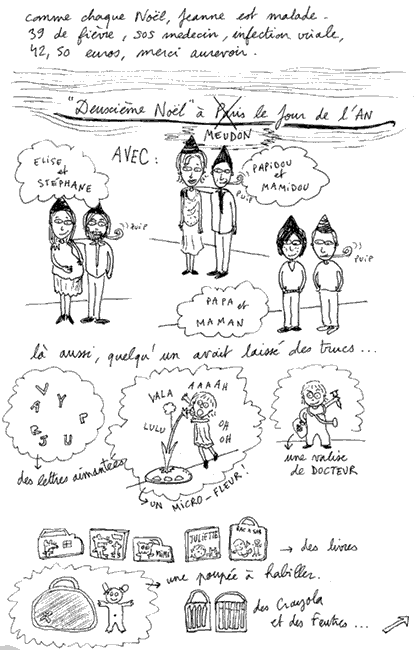 comme chaque Noël, Jeanne est malade.
39 de fièvre, SOS medecin, infection virale,
42,50 euros, merci aurevoir.
"Deuxième Noël" à Paris le jour de l'AN
MEUDON
AVEC :
ELISE
et
STÉPHANE
PUIP
PAPIDOU
et
MAMIDOU
PUIP
PAPA et
MAMAN
PUIP
là aussi, quelqu'un avait laissé des trucs...
V
A
Y
P
R
J
U
des lettres aimantées
VALA
AAAAH
LULU
OH
OH
UN MICRO-FLEUR!
une valise
de DOCTEUR
MIMI
JULIETTE
SAC A SON
des livres
une poupée à habiller.
des Crayola
et des Feutres...